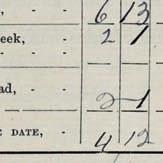 , - 6 13
eek, - 2 1
ad, - 2 1
E DATE, - 4 12